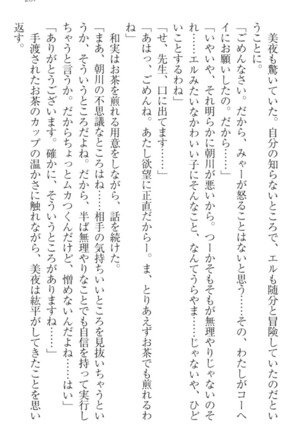 美夜も驚いていた。自分の知らないところで、エルも随分と冒険していたのだとい
うことに。
「ごめんなさい。だから、みゃーが怒ることはないと思う……その、わたしがコーヘ
イにお願いしたの。だから……」
「いやいや、それ明らかに朝川が悪いから。つーかそもそもが無理やりじゃないかそ
れ……エルみたいなかわいい子にそんなこと、なんてうらやま……じゃないや、ひど
いことするわね」
「せ、先生、口に出てます……」
「あはっ、ごめんね。あたし欲望に正直だからー。ま、とりあえずお茶でも煎れるわ
ね」
和実はお茶を煎れる用意をしながら、話を続けた。
「まあ、朝川の不思議なところはね……相手の気持ちいいところを見抜いちゃうとい
うか、そういうところだよね。だから、半ば無理やりなことでも自信を持って実行し
ちゃうと言うか。だからちょっとムカつくんだけど、憎めないんだよね……はい」
「ありがとうございます。確かに、そういうところがありますね……」
手渡されたお茶のカップの温かさに触れながら、美夜は紘平がしてきたことを思い
返す。